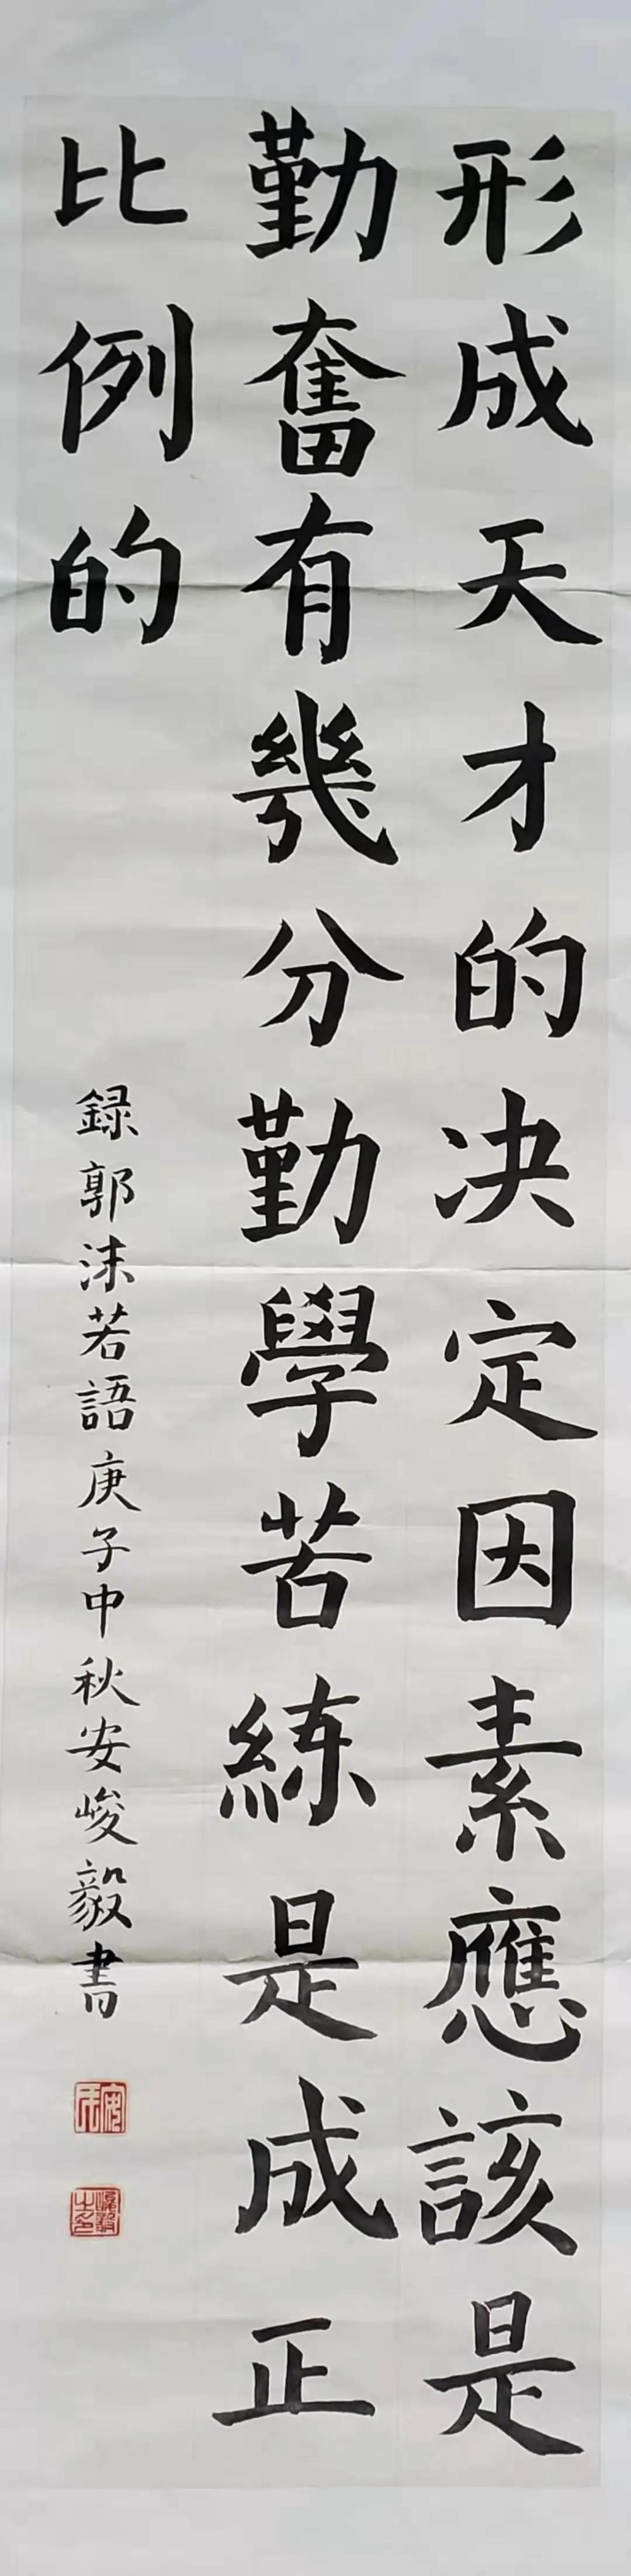 形成天才的决定因素應該是
勤奮有幾分勤學苦練是成正
比例的
録郭沫若語庚子中秋安峻毅書